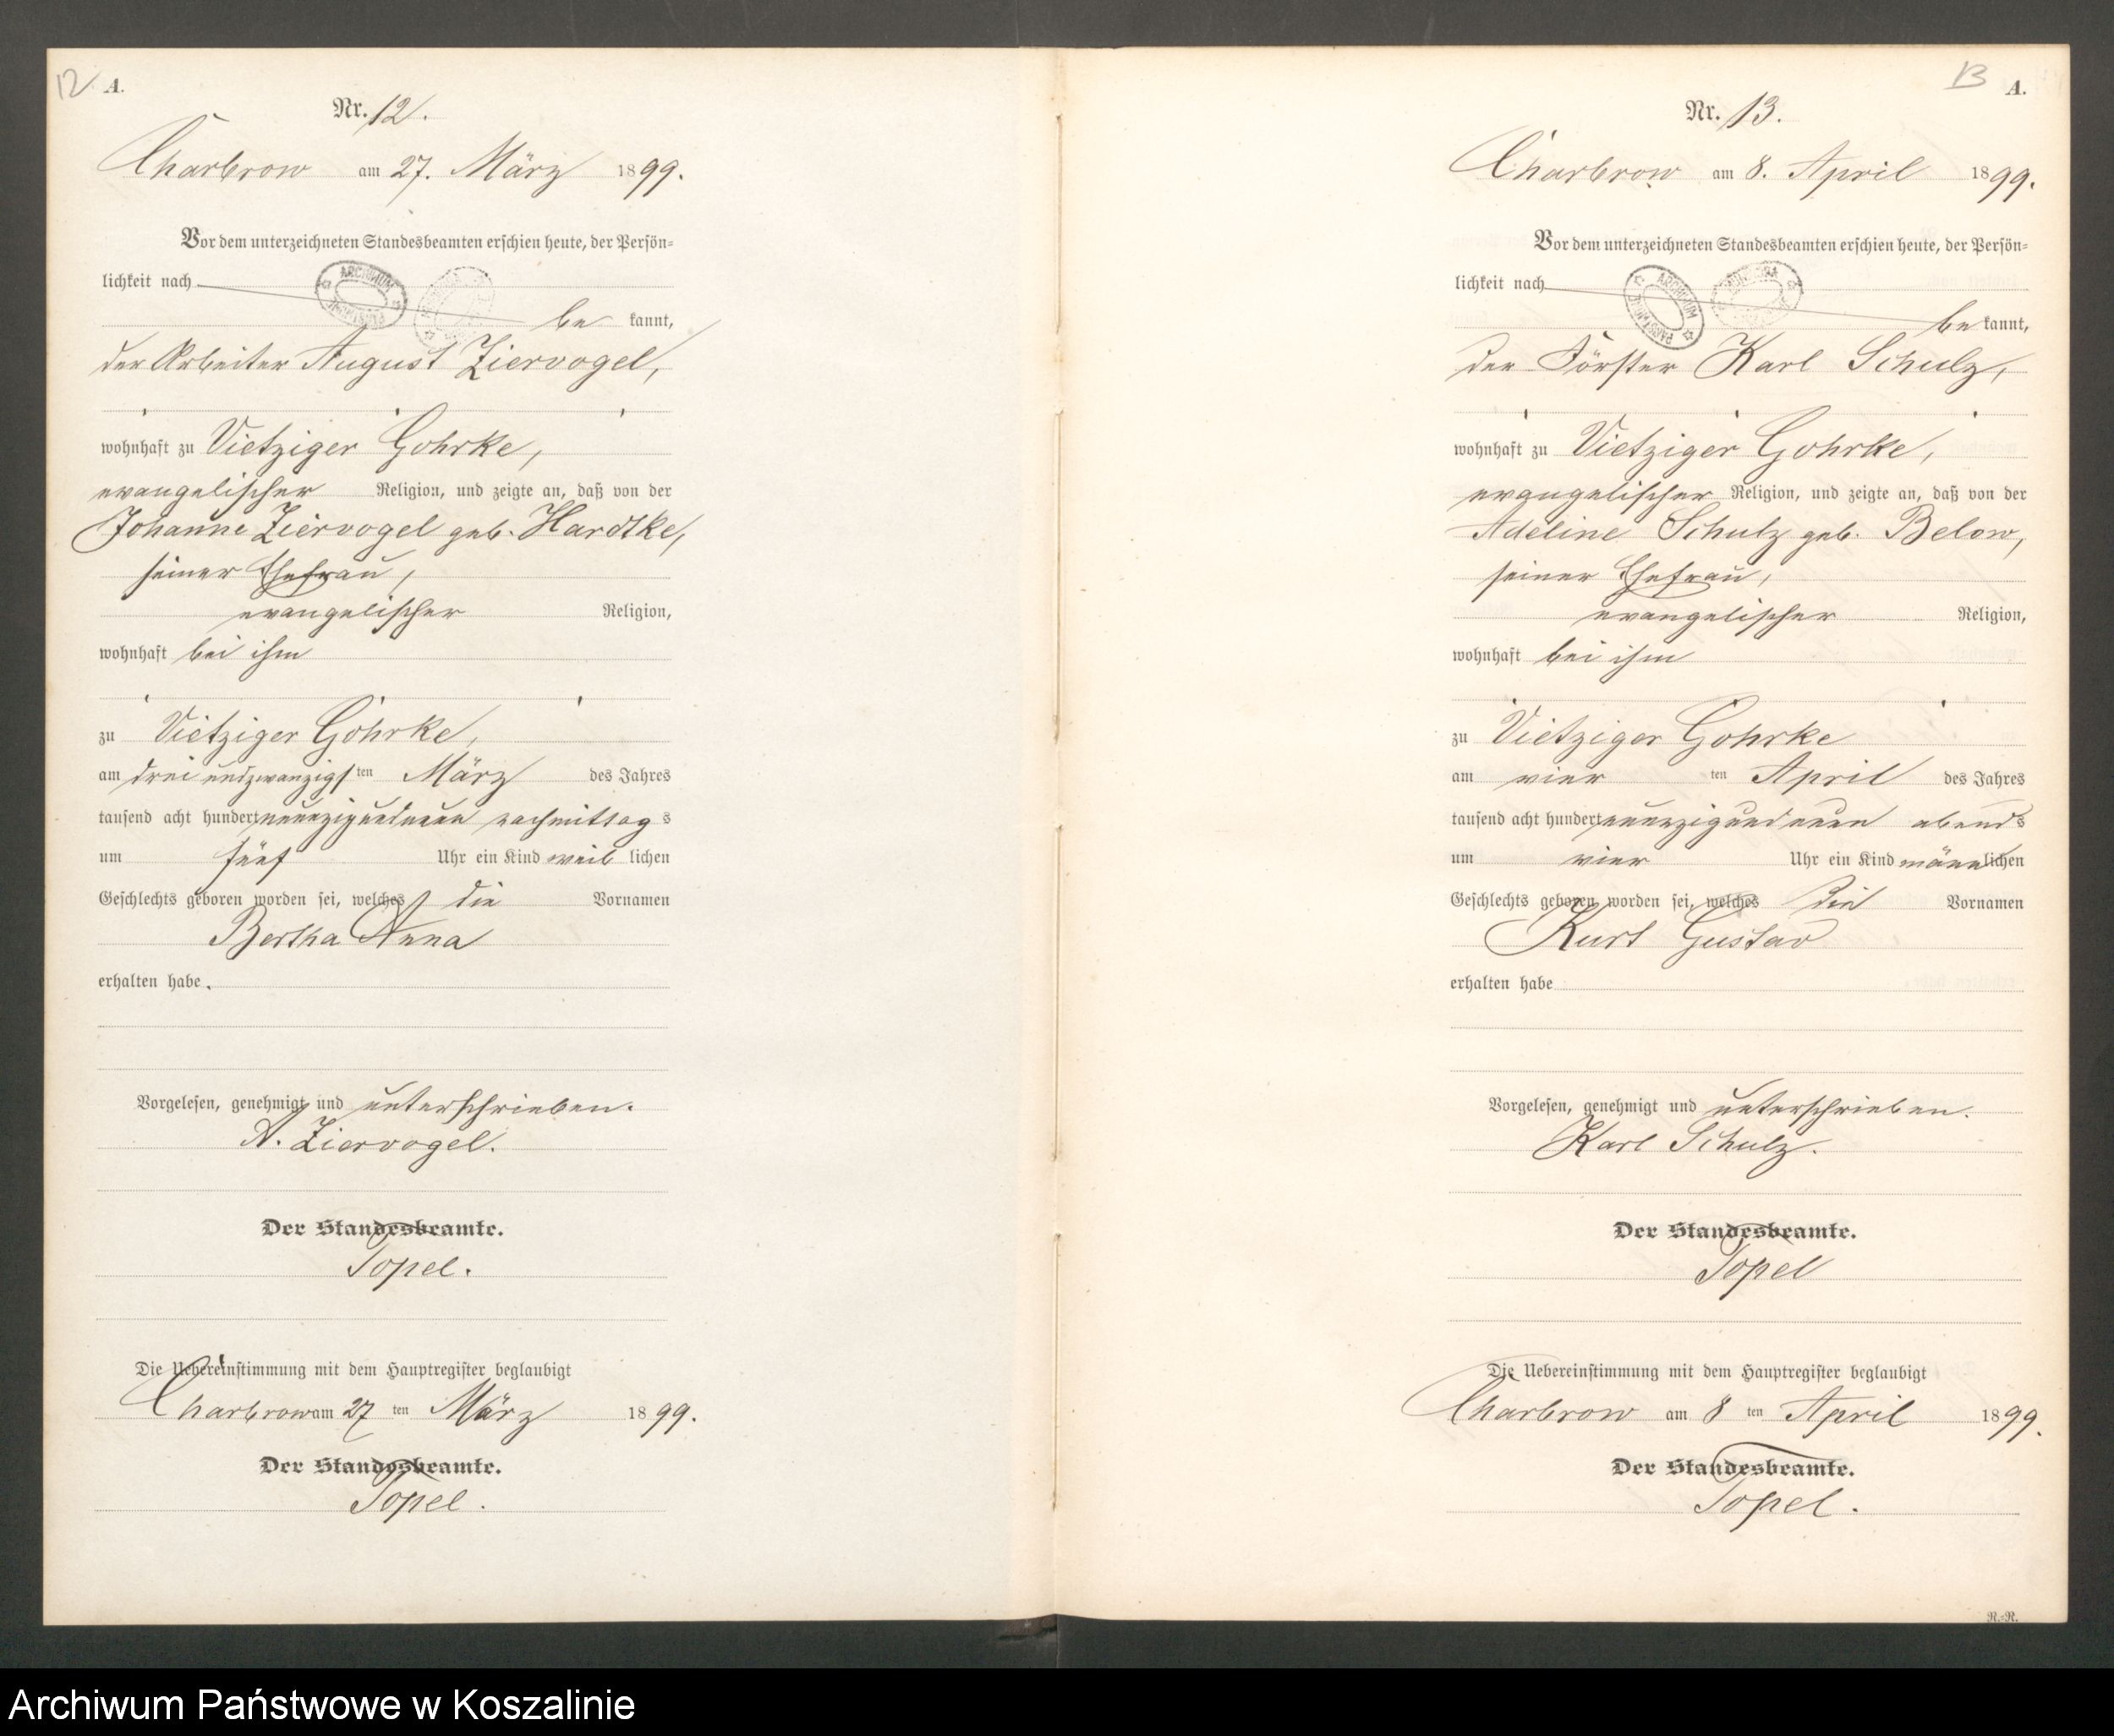 12
A.
Nr. 12.
Charbrow am 27. März 1899.
Vor dem unterzeichneten Standesbeamten erschien heute, der Persön-
lichkeit nach
be kannt,
der Arbeiter August Ziervogel,
wohnhaft zu Vietziger Gohrke,
evangelischer Religion, und zeigte an, daß von der
Johanne Ziervogel geb. Hardtke,
seiner Ehefrau,
evangelischer Religion,
wohnhaft bei ihm
zu Vietziger Gohrke,
am drei undzwanzigsten März des Jahres
tausend acht hundert neunzigundneun nachmittags
um fünf Uhr ein Kind weiblichen
Geschlechts geboren worden sei, welches die Vornamen
Bertha Anna
erhalten habe.
Vorgelesen, genehmigt und unterschrieben.
A. Ziervogel.
Der Standesbeamte.
Topel.
Die Uebereinstimmung mit dem Hauptregister beglaubigt
Charbrow am 27 ten März 1899.
Der Standesbeamte.
Topel.
13
A.
Nr. 13.
Charbrow am 8. April 1899.
Vor dem unterzeichneten Standesbeamten erschien heute, der Persön-
lichkeit nach
be kannt,
der Förster Karl Schulz,
wohnhaft zu Vietziger Gohrke,
evangelischer Religion, und zeigte an, daß von der
Adeline Schulz geb. Below,
seiner Ehefrau,
evangelischer Religion,
wohnhaft bei ihm
zu Vietziger Gohrke
am vier ten April des Jahres
tausend acht hundert neunzigundneun abends
um vier Uhr ein Kind männlichen
Geschlechts geboren worden sei, welches die Vornamen
Kurt Gustav
erhalten habe
Vorgelesen, genehmigt und unterschrieben.
Karl Schulz.
Der Standesbeamte.
Topel
Die Uebereinstimmung mit dem Hauptregister beglaubigt
Charbrow am 8 ten April 1899.
Der Standesbeamte.
Topel.
R.-R.
Archiwum Państwowe w Koszalinie